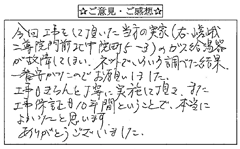 ☆ご意見・ご感想☆
今回工事をして頂いた当方の実家(右・嵯峨
二尊院門前北中院町5-3)のガス給湯器
が故障してしまい、ネットでいろいろ調べた結果、
一番安かったのでお願いしました。
工事はきちんと丁寧に実施して頂き、また
工事保証自10年間ということで、本当に
よかったと思います!
ありがとうございました。